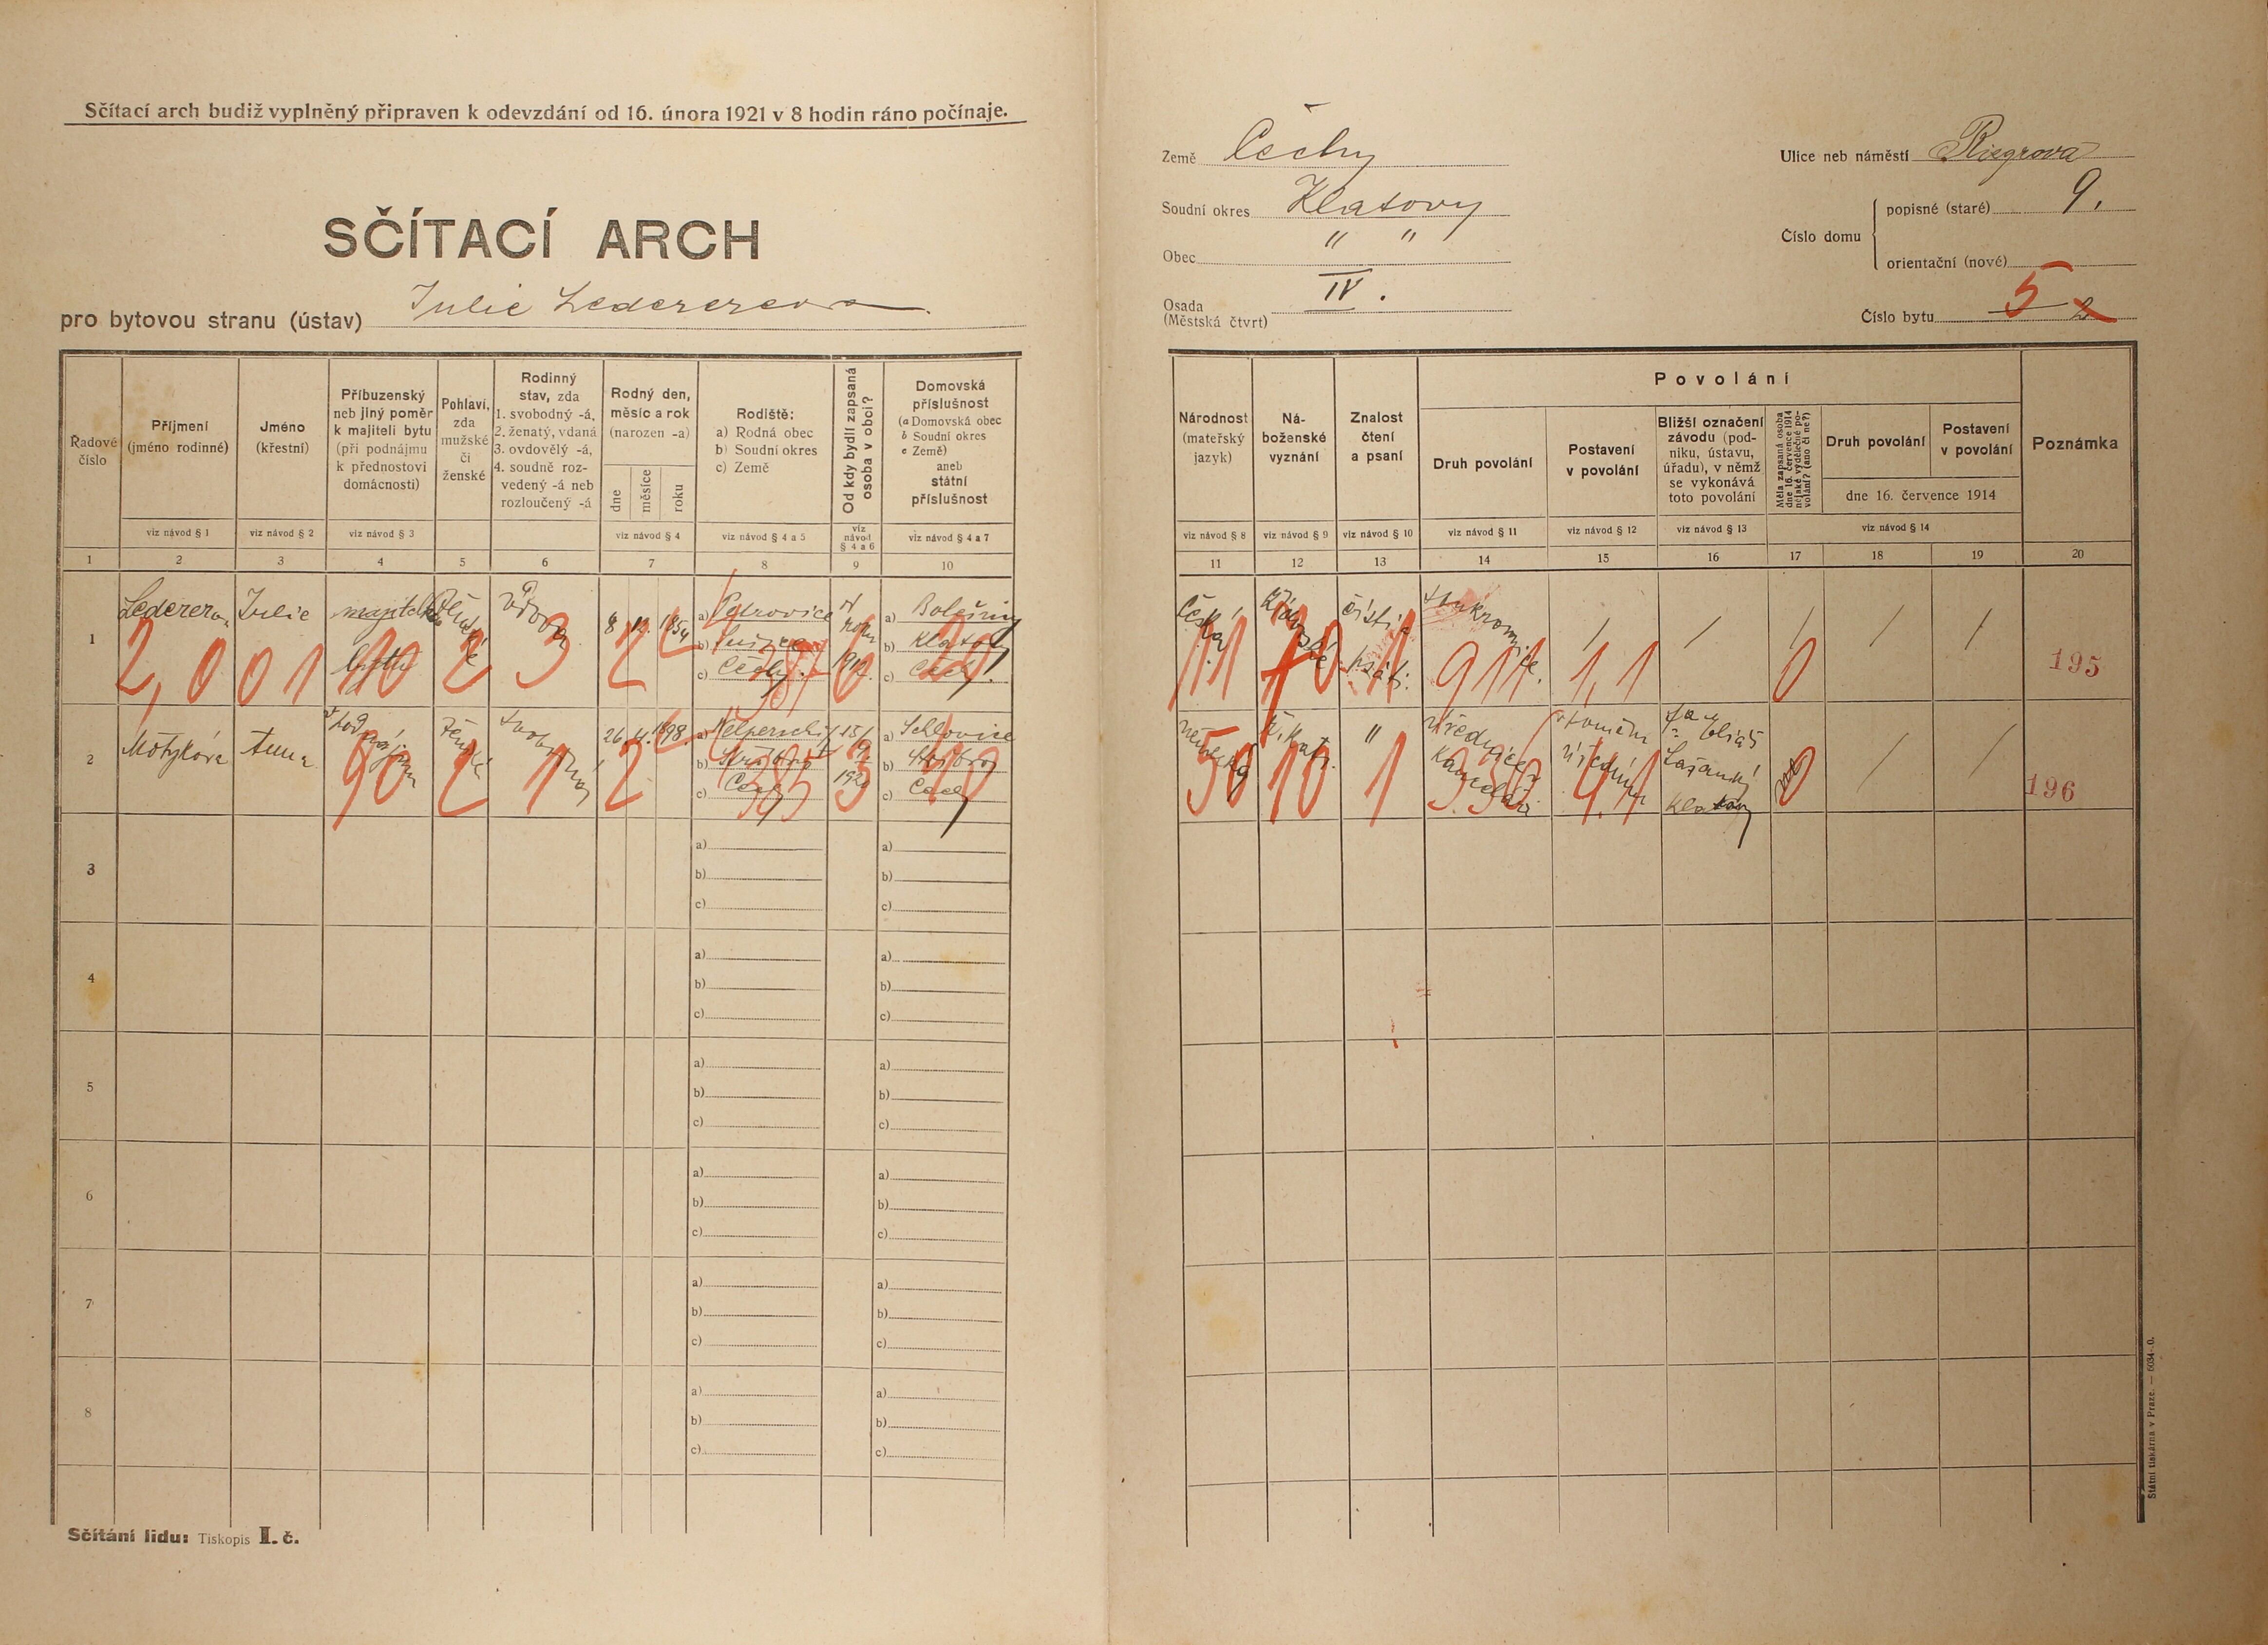 Sčítací arch budiž vyplněný připraven k odevzdání od 16. února 1921 v 8 hodin ráno počínaje.
SČÍTACÍ ARCH
pro bytovou stranu (ústav) Julie Ledererova
Země Čechy
Soudní okres Klatovy
Obec " "
Osada (Městská čtvrt) IV.
Ulice neb náměstí Riegrova
Číslo domu
popisné (staré) 9.
orientační (nové)
Číslo bytu 5 2
Řadové číslo
Příjmení (jméno rodinné)
viz návod § 1
Jméno (křestní)
viz návod § 2
Příbuzenský neb jiný poměr k majiteli bytu (při podnájmu k přednostovi domácnosti)
viz návod § 3
Pohlaví, zda mužské či ženské
Rodinný stav, zda
1. svobodný -á,
2. ženatý, vdaná
3. ovdovělý -á,
4. soudně rozvedený -á neb rozloučený -á
Rodný den, měsíc a rok (narozen -a)
dne
měsíce
roku
viz návod § 4
Rodiště:
a) Rodná obec
b) Soudní okres
c) Země
viz návod § 4 a 5
Od kdy bydlí zapsaná osoba v obci?
viz návod § 4 a 6
Domovská příslušnost
(a Domovská obec
b Soudní okres
c Země)
aneb státní příslušnost
viz návod § 4 a 7
Národnost (mateřský jazyk)
viz návod § 8
Náboženské vyznání
viz návod § 9
Znalost čtení a psaní
viz návod § 10
Povolání
Druh povolání
viz návod § 11
Postavení v povolání
viz návod § 12
Bližší označení závodu (podniku, ústavu, úřadu), v němž se vykonává toto povolání
viz návod § 13
Měla zapsaná osoba dne 16. července 1914 nějaké výdělečné povolání? (ano či ne?)
Druh povolání
Postavení v povolání
dne 16. července 1914
viz návod § 14
Poznámka
1 2 3 4 5 6 7 8 9 10 11 12 13 14 15 16 17 18 19 20
1 Lederer. Julie majitelka bytu ženské vdova 8 12. 1854
a) Petrovice
b) Sušice
c) Čechy.
od roku 1912.
a) Bolešiny
b) Klatovy
c) Čechy.
česká židovské čísti a psáti. soukromnice. / / / / /
2,0 01 10 2 3 2 2 387 6 20 11 70 1 911 1,1 0 195
2 Motyková Anna podnájem ženské svobodná 26. 4. 1898.
a)
b) Stříbro
c) Čechy
15/9 1920
a)
b) Stříbro
c) Čechy
německá ř. kat. " úřednice kanceláře úřednice fa Eliáš Klatovy ne / /
90 2 1 2 2 385 3 10 50 10 1 4.1 0 196
3 a) b) c) a) b) c)
4 a) b) c) a) b) c)
5 a) b) c) a) b) c)
6 a) b) c) a) b) c)
7 a) b) c) a) b) c)
8 a) b) c) a) b) c)
Sčítání lidu: Tiskopis I. č.
Státní tiskárna v Praze. — 6034-.0.